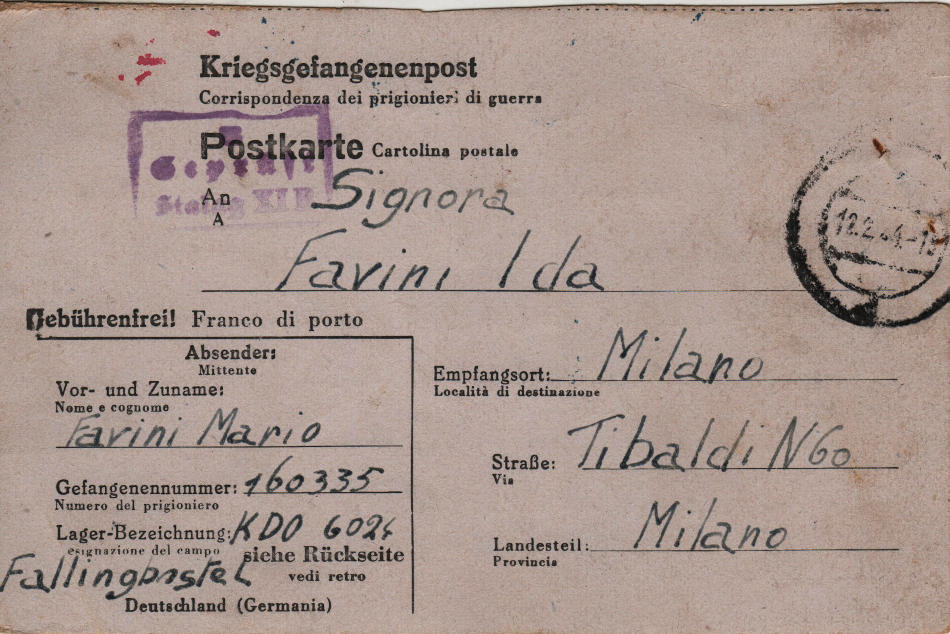 Kriegsgefangenenpost
Corrispondenza dei prigionieri di guerra
Postkarte Cartolina postale
Geprüft
Stalag XI B
An
A
Signora
Favini Ida
18.2.44.-1
Gebührenfrei! Franco di porto
Absender:
Mittente
Vor- und Zuname:
Nome e cognome
Favini Mario
Gefangenennummer: 160335
Numero del prigioniero
Lager-Bezeichnung: KDO 6024
esignazione del campo
siehe Rückseite
vedi retro
Fallingbostel
Deutschland (Germania)
Empfangsort: Milano
Località di destinazione
Straße: Tibaldi N60
Via
Landesteil: Milano
Provincia